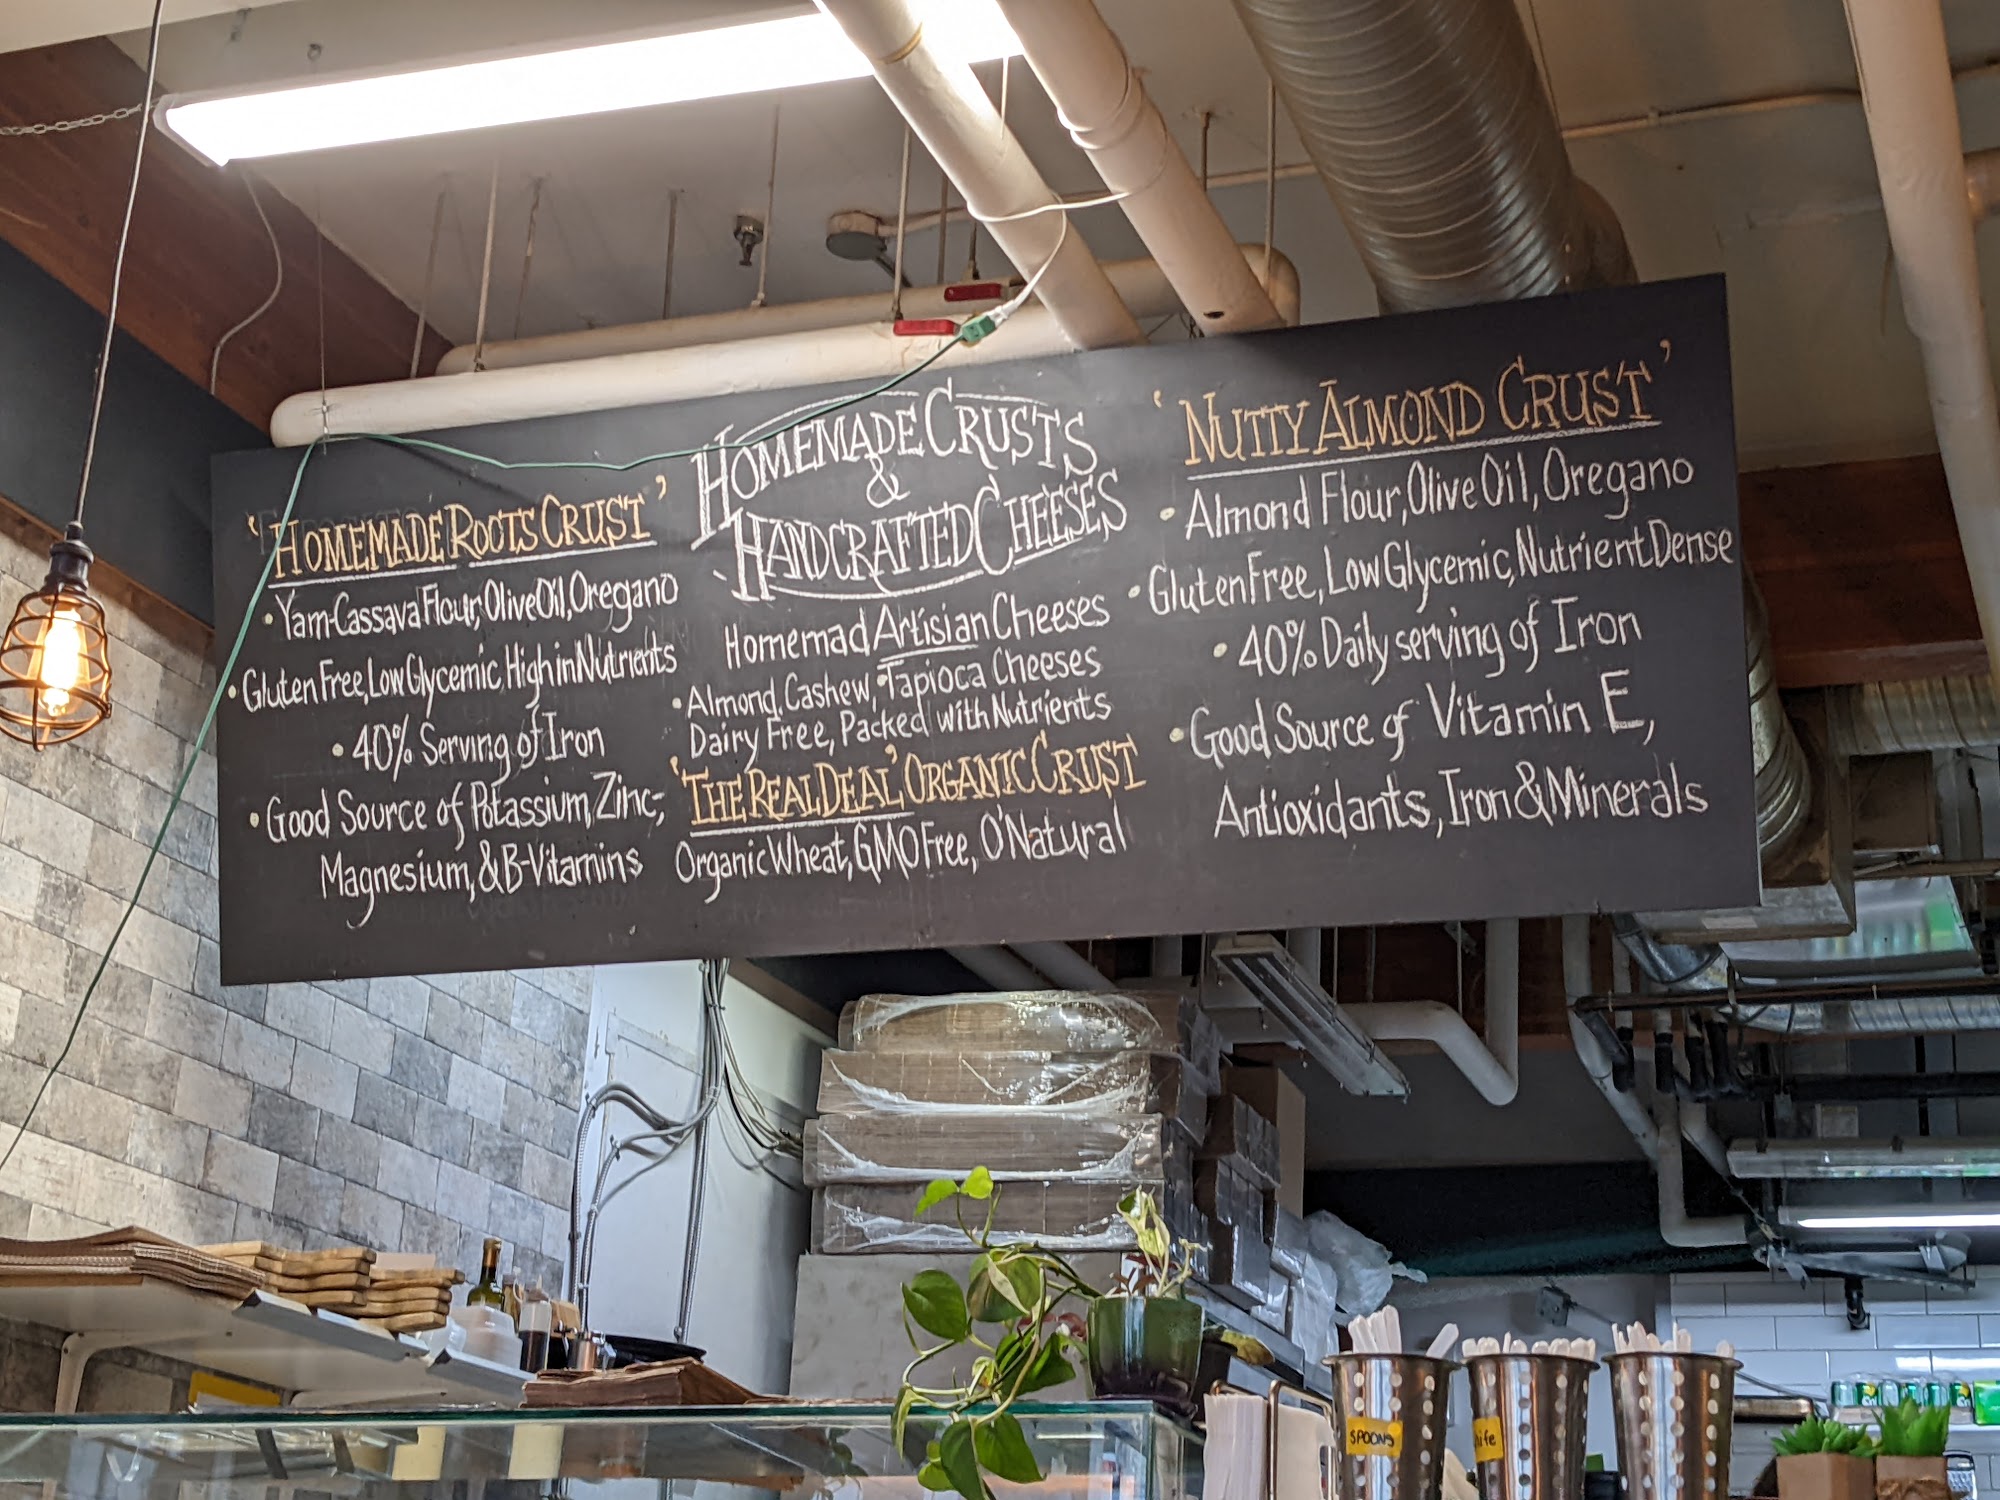 'HOMEMADE ROOTS CRUST'
• Yam-Cassava Flour, Olive Oil, Oregano
• Gluten Free, Low Glycemic, High in Nutrients
• 40% Serving of Iron
• Good Source of Potassium, Zinc,
Magnesium, & B-Vitamins
HOMEMADE CRUSTS
&
HANDCRAFTED CHEESES
Homemad Artisian Cheeses
• Almond, Cashew, Tapioca Cheeses
Dairy Free, Packed with Nutrients
'THE REAL DEAL' ORGANIC CRUST
Organic Wheat, GMO Free, O'Natural
'NUTTY ALMOND CRUST'
• Almond Flour, Olive Oil, Oregano
• Gluten Free, Low Glycemic, Nutrient Dense
• 40% Daily serving of Iron
• Good Source of Vitamin E,
Antioxidants, Iron & Minerals
SPOONS
nife